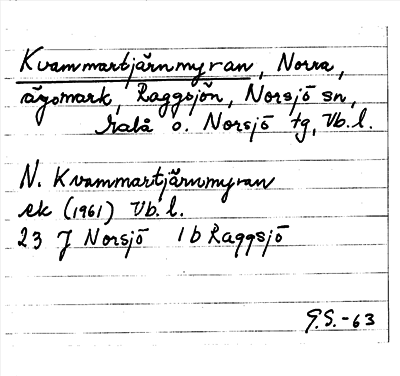 Kvammartjärnmyran, Norra,
ägomark, Raggsjön, Norsjö sn,
Malå o. Norsjö tg, Vb. l.
N. Kvammartjärnmyran
ek (1961) Vb. l.
23 J Norsjö 1 b Raggsjö
G.S.-63